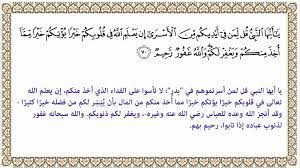 يَٰٓأَيُّهَا ٱلنَّبِيُّ قُل لِّمَن فِيٓ أَيۡدِيكُم مِّنَ ٱلۡأَسۡرَىٰٓ إِن يَعۡلَمِ ٱللَّهُ فِي قُلُوبِكُمۡ خَيۡرٗا يُؤۡتِكُمۡ خَيۡرٗا مِّمَّآ
أُخِذَ مِنكُمۡ وَيَغۡفِرۡ لَكُمۡۚ وَٱللَّهُ غَفُورٞ رَّحِيمٞ ٧٠
يا أيها النبي قل لمن أسرتموهم في "بدر": لا تأسوا على الفداء الذي أخذ منكم، إن يعلم الله
تعالى في قلوبكم خيرًا يؤتكم خيرًا مما أخذ منكم من المال بأن يُيسِّر لكم من فضله خيرًا كثيرًا -
وقد أنجز الله وعده للعباس رضي الله عنه وغيره-، ويغفر لكم ذنوبكم. والله سبحانه غفور
لذنوب عباده إذا تابوا، رحيم بهم.